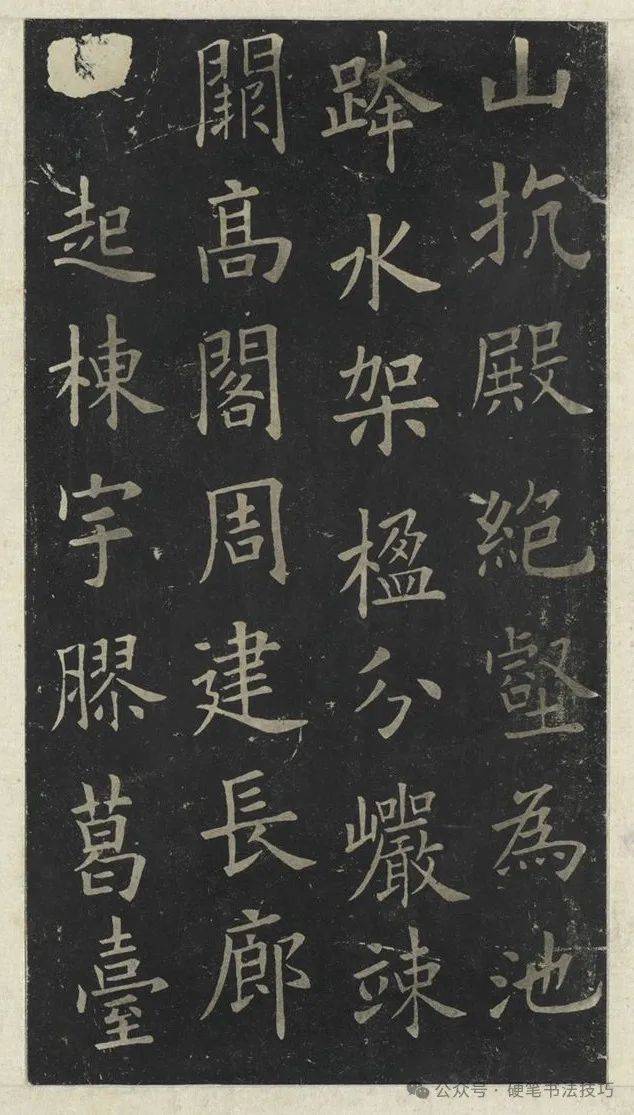 山抗殿絶壑為池
跨水架楹分巖竦
闕高閣周建長廊
起棟宇膠葛臺
公众号 · 硬笔书法技巧